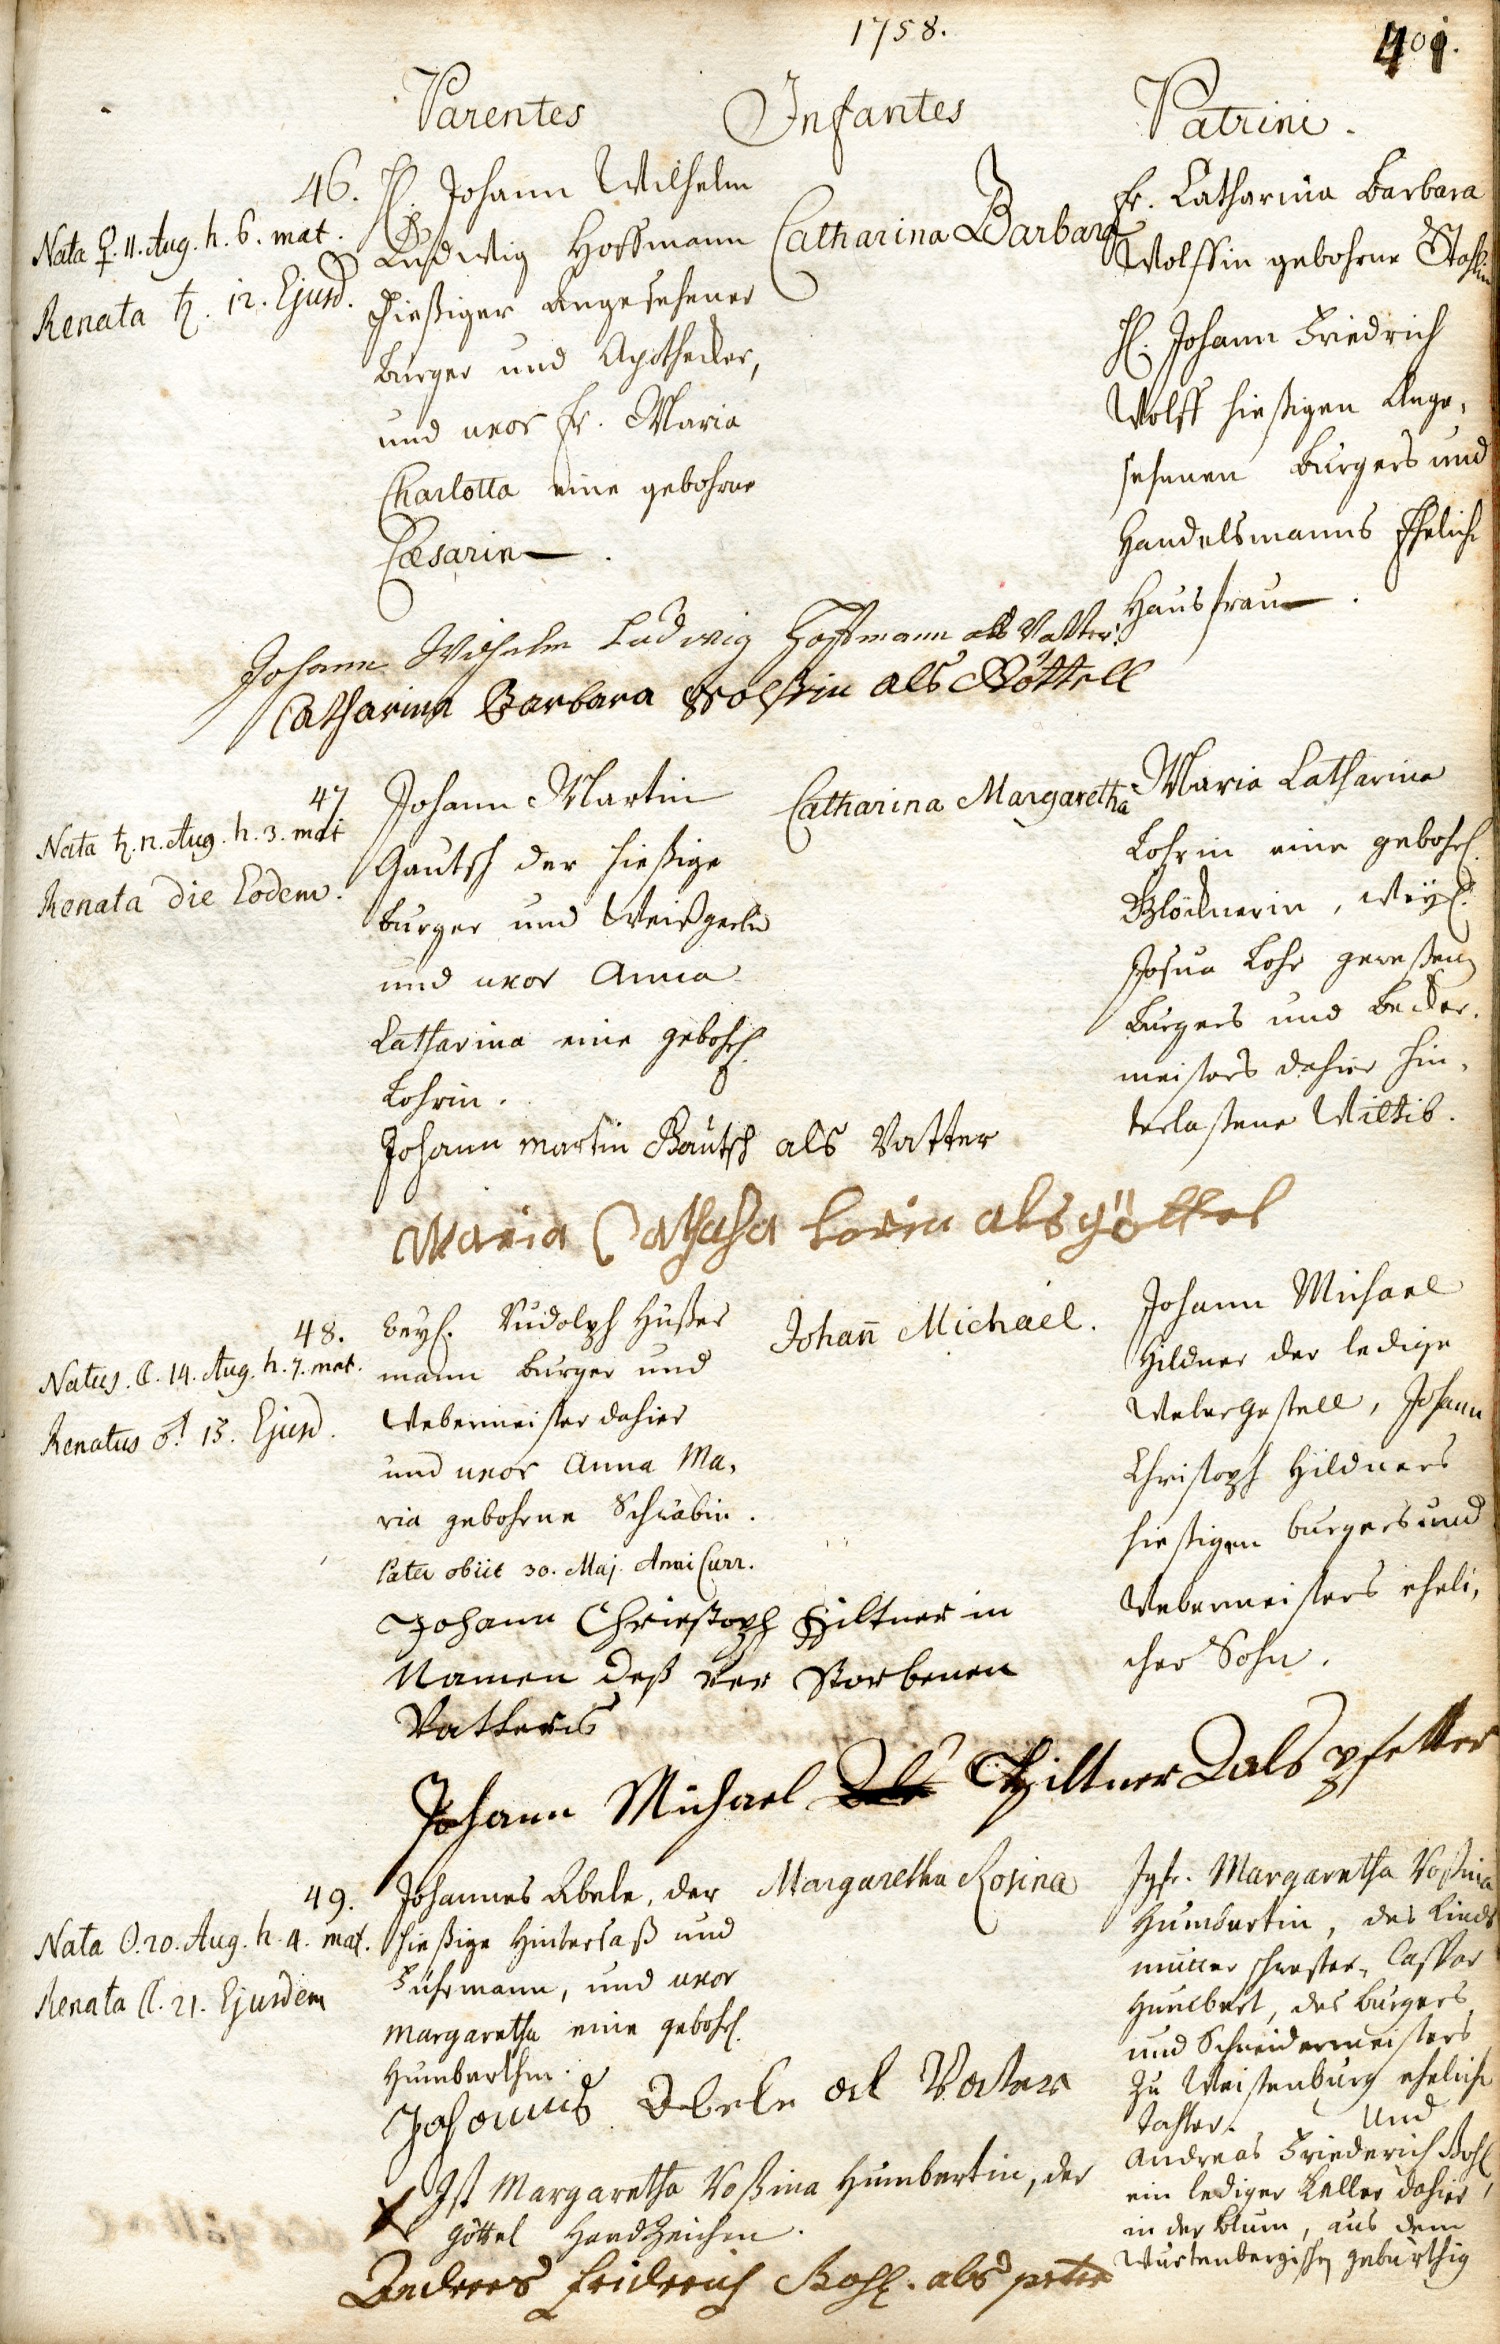 1758.
401.
Parentes Infantes Patrini.
46.
Nata ♀. 11. Aug. h. 6. mat.
Renata ♄. 12. Ejusd.
H. Johann Wilhelm
Ludwig Hoffmann
hießiger Angesehener
burger und Apothecker,
und uxor Fr. Maria
Charlotta eine gebohrne
Cæsarin.
Catharina Barbara
Fr. Catharina Barbara
Wolffin gebohrne
H. Johann Friedrich
Wolff hießigen Ange,
sehenen burgers und
Handelsmanns Eheliche
Hausfrau.
Johann Wilhelm Ludwig Hoffmann als Vatter
Catharina Barbara Wolffin als Göttell
47
Nata ♄. 12. Aug. h. 3. mat
Renata die Eodem.
Johann Martin
Gautsch der hießige
burger und Weißgerber
und uxor Anna
Catharina eine gebohr.
Lohrin.
Catharina Margaretha
Maria Catharina
Lohrin eine gebohr.
Glöcknerin, weyl.
Josua Lohr geweßen
burgers und becker,
meisters dahier hin,
terlaßene Wittib.
Johann martin Gautsch als Vatter
Maria Cathaha Lorin als göttel
48.
Natus. ☾. 14. Aug. h. 7. mat.
Renatus ♂. 15. Ejusd.
weyl. Rudolph Hußer
mann burger und
Webermeister dahier
und uxor Anna Ma,
ria gebohrne Schwäbin.
Pater obiit 30. Maj. Anni Curr.
Johann Michael.
Johann Michael
Hildner der ledige
Weber gesell, Johann
Christoph Hildners
hießigen burgers und
Webermeisters eheli,
cher Sohn.
Johann Christoph Hiltner in
Namen deß ver Storbenen
Vatters
Johann Michael Hiltner als pfetter
49.
Nata ☉. 20. Aug. h. 4. mat.
Renata ☾. 21. Ejusdem
Johannes Abele, der
hießige Hintersaß und
Fuhrmann, und uxor
Margaretha eine gebohr.
Humberthin.
Margaretha Rosina
Jgfr. Margaretha Roßina
Humbertin, des Kinds
mutter schwester, Caspar
Humbert, des burgers
und Schneidermeisters
zu Weißenburg eheliche
tochter. Und
Andreas Friederich Bohl,
ein lediger Keller dahier,
in der Blum, aus dem
Würtenbergischen gebürthig
Johannes Abele als Vater
X Ist Margaretha Roßina Humbertin, der
göttel Handzeichen.
Andreas fridrich Bohl. als peter